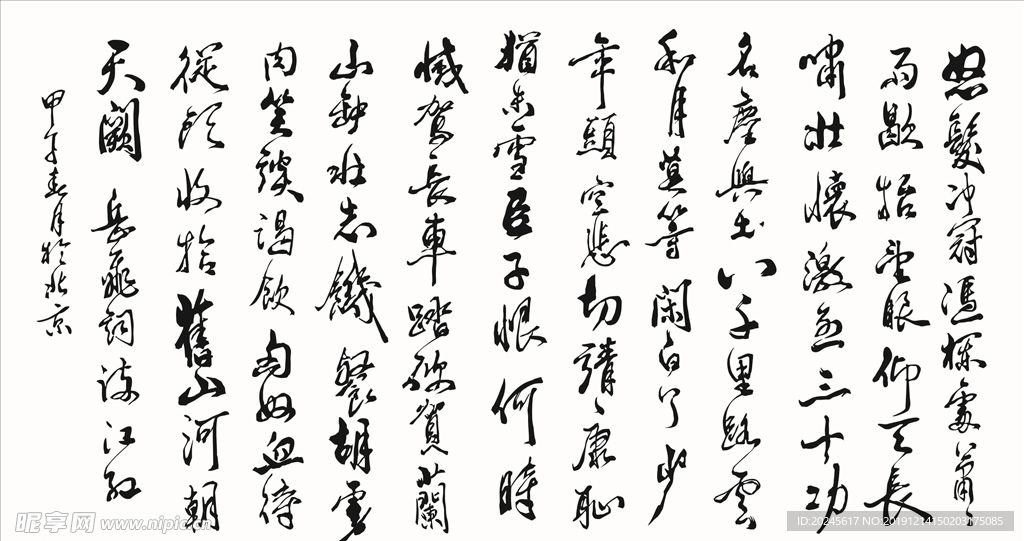 怒髮冲冠馮欄處蕭々
雨歇抬望眼仰天長
嘯壯懷激烈三十功
名塵與土八千里路云
和月莫等閑白了少
年頭空悲切靖々康恥
猶未雪臣子恨何時
憾駕長車踏破賀蘭
山缺壯志饑餐胡虜
肉笑談渴飲匈奴血待
從頭收拾舊山河朝
天闕 岳飛詞滿江紅
甲午春月於北京
昵享网 www.nipic.cn
ID:20245617 NO:20191214150203175085